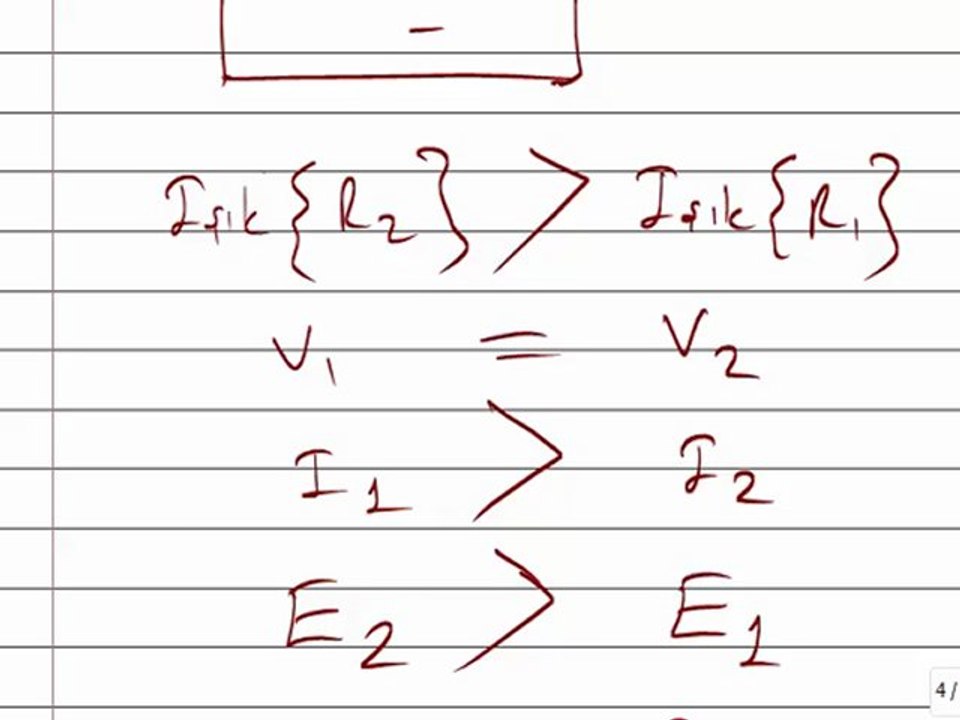 -
Işık{R2} > Işık{R1}
V1 = V2
I1 > I2
E2 > E1
4/